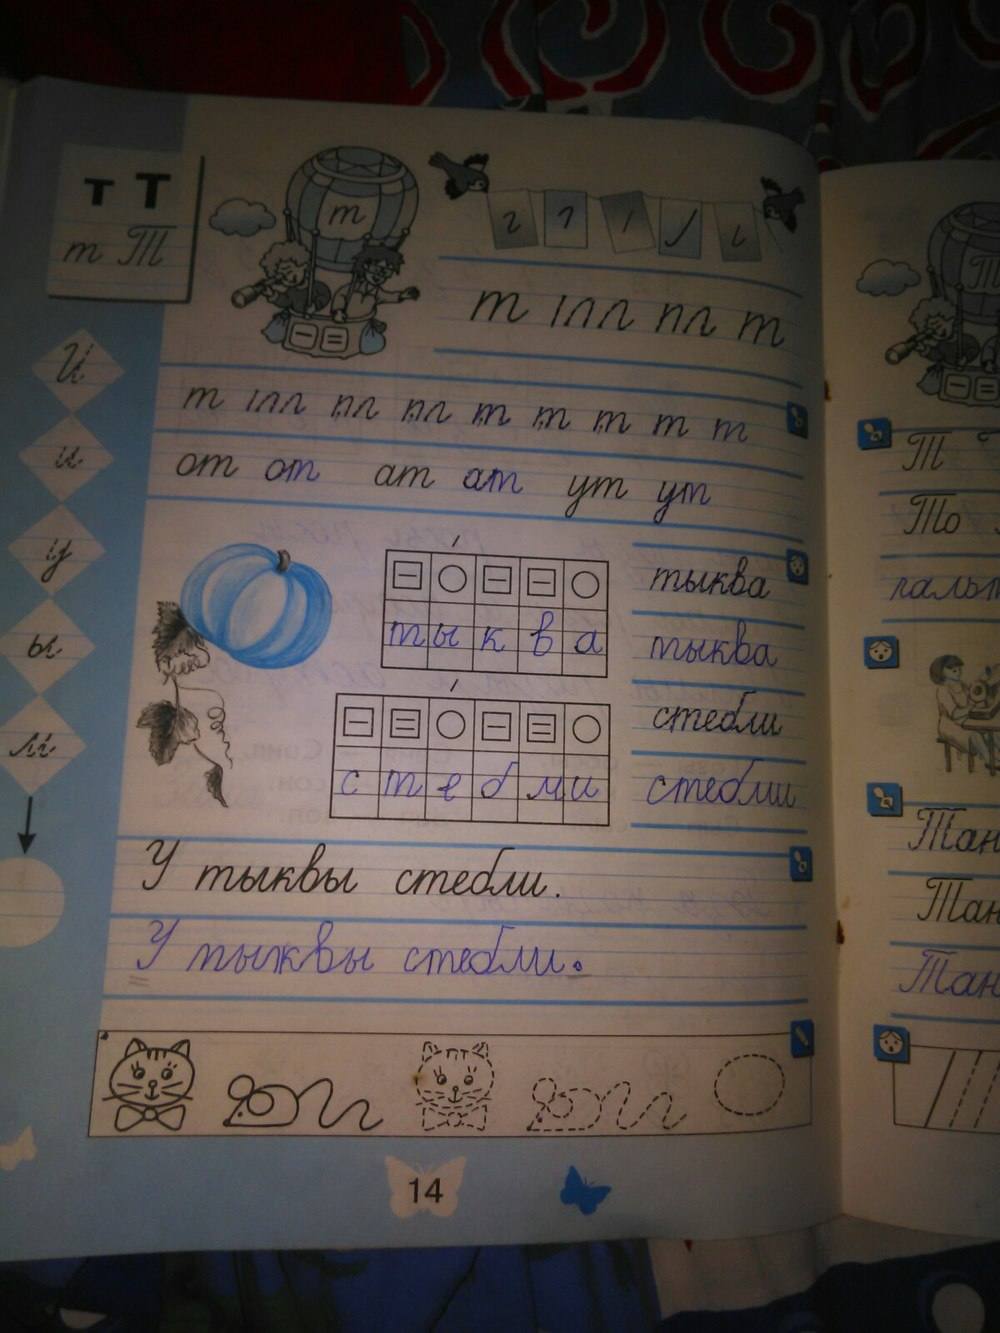 т Т
т Т
т
т ıлл пл т
И
т ıлл пл пл т т т т т
и
от от ат ат ут ут
у
тыква
тыква
тыква
ы
стебли
л
стебли
стебли
У тыквы стебли.
У тыквы стебли.
14
Т
То
пальт
Тан
Тан
Тан